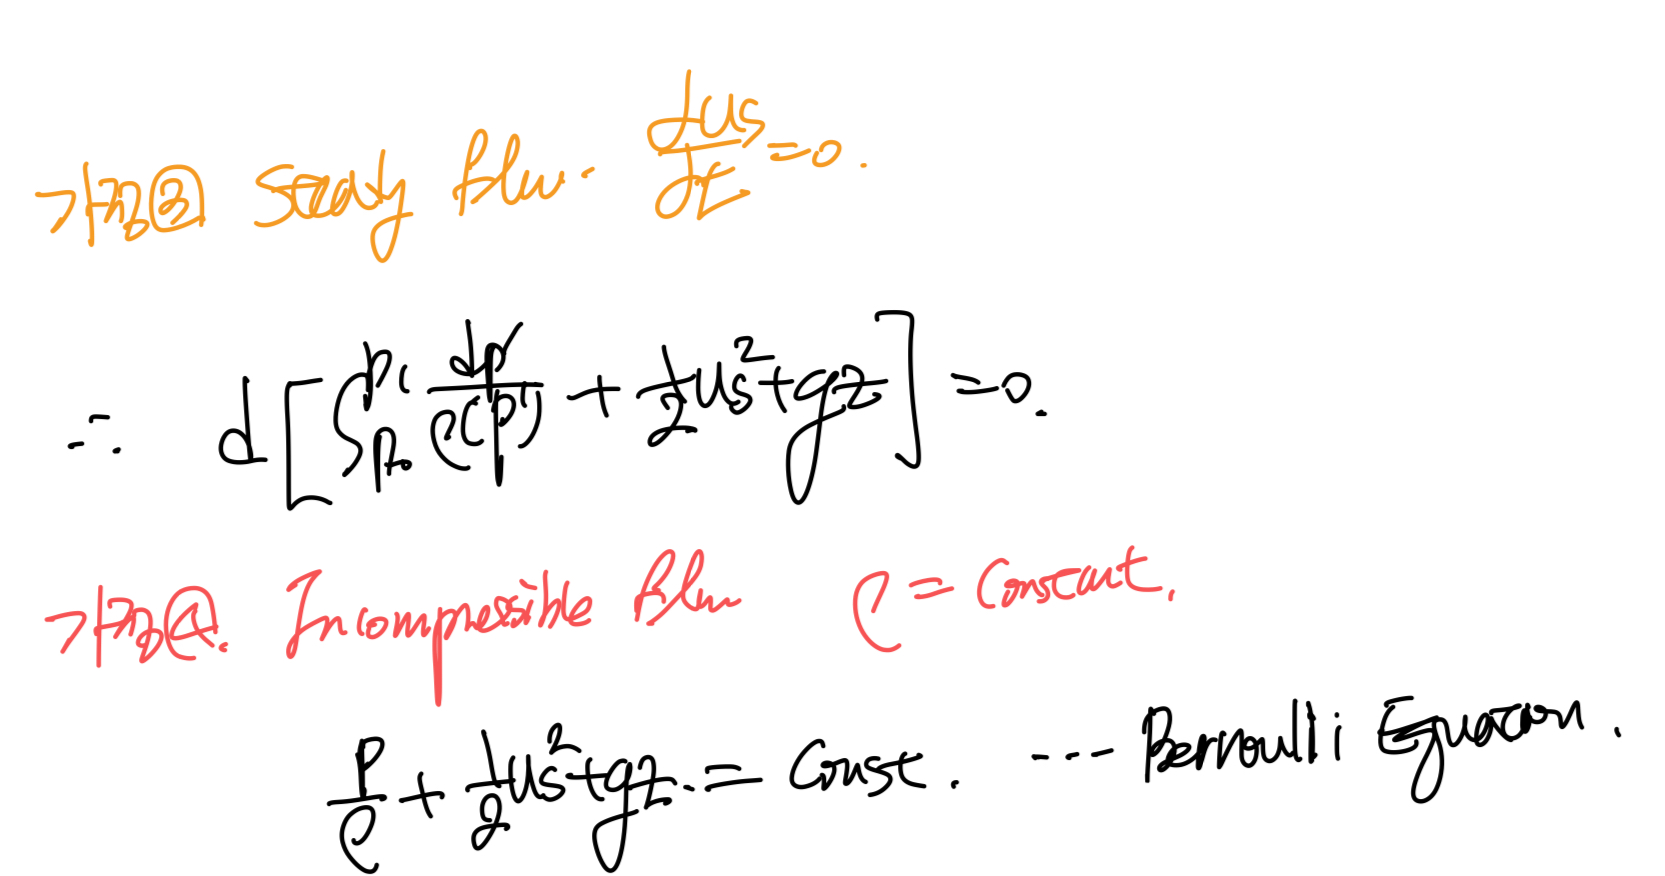 가정③ Steady flow. ∂us/∂t = 0.
∴ d[∫_{p₀}^{p₁} dp'/ρ(p') + 1/2 us² + gz] = 0.
가정④. Incompressible flow ρ = constant.
P/ρ + 1/2 us² + gz. = Const. ---- Bernoulli Equation.